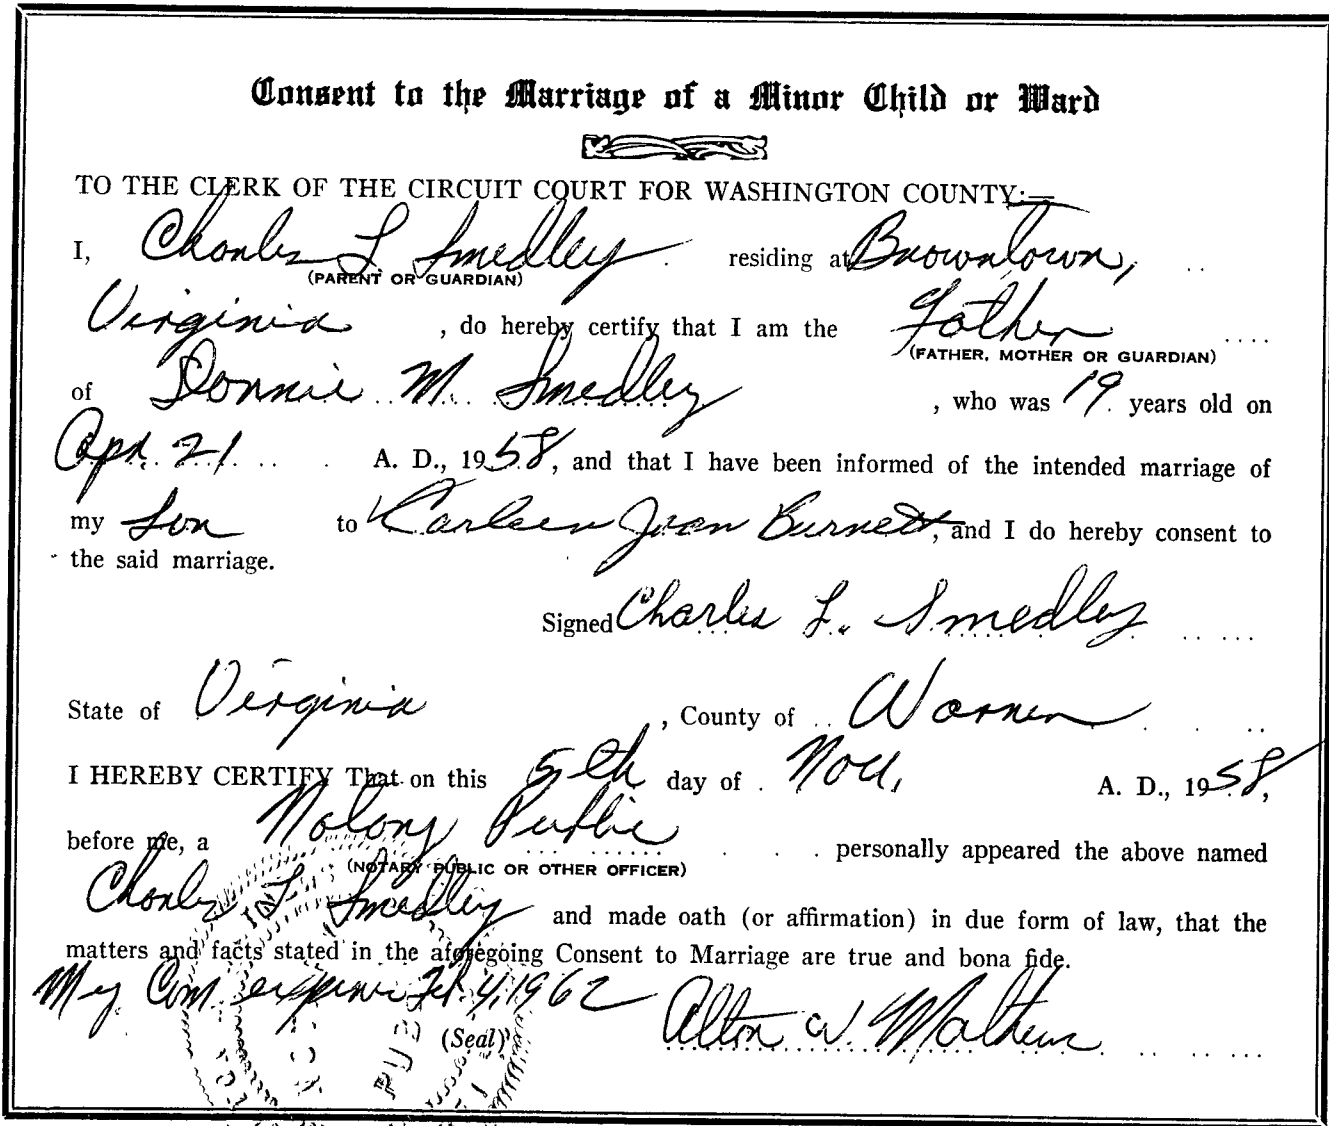 Consent to the Marriage of a Minor Child or Ward
TO THE CLERK OF THE CIRCUIT COURT FOR WASHINGTON COUNTY:—
I, Charles L Smedley residing at Browntown,
(PARENT OR GUARDIAN)
Virginia, do hereby certify that I am the Father
(FATHER, MOTHER OR GUARDIAN)
of Donnie M. Smedley, who was 19 years old on
Apr. 21 A. D., 1958, and that I have been informed of the intended marriage of
my Son to Karleen Joan Burnett, and I do hereby consent to
the said marriage.
Signed Charles L. Smedley
State of Virginia, County of Warren
I HEREBY CERTIFY That on this 5th day of Nov. A. D., 1958,
before me, a Notary Public personally appeared the above named
(NOTARY PUBLIC OR OTHER OFFICER)
Charles L. Smedley and made oath (or affirmation) in due form of law, that the
matters and facts stated in the aforegoing Consent to Marriage are true and bona fide.
My Com expires Feb. 4, 1962
(Seal) Alton W. Mathews